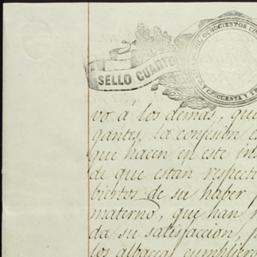 SELLO CUARTO
vo á los demas, que
gantes, la confusion e
que hacen en este ins
de que estan respecto
bientos de su haber p
materno, que han r
da su satisfaccion, p
los albaceas cumpliero